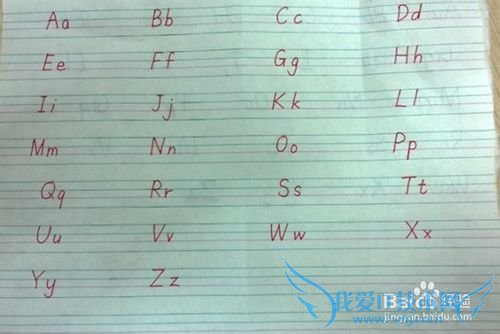 Aa Bb Cc Dd
Ee Ff Gg Hh
Ii Jj Kk Ll
Mm Nn Oo Pp
Qq Rr Ss Tt
Uu Vv Ww Xx
Yy Zz
Baidu 经验
jingyan.baidu.com